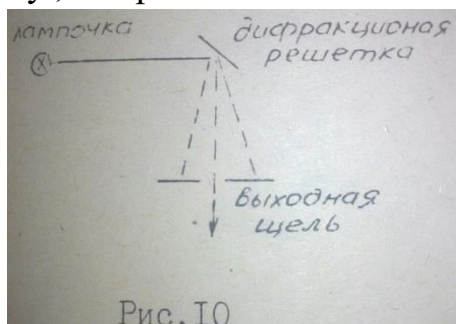 лампочка
дифракционная
решетка
выходная
щель
Рис.10